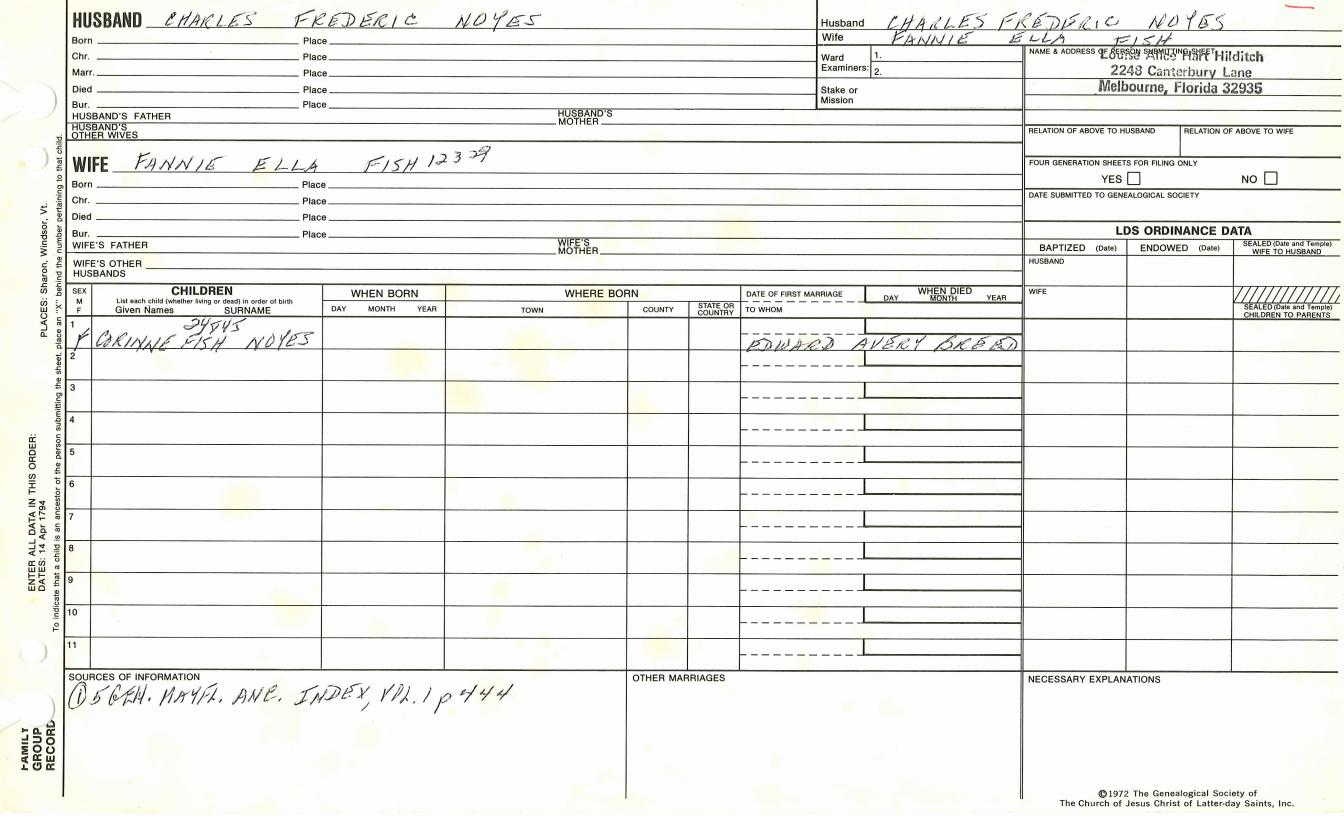 HUSBAND CHARLES FREDERIC NOYES
Born Place
Chr. Place
Marr. Place
Died Place
Bur. Place
HUSBAND'S FATHER HUSBAND'S MOTHER
HUSBAND'S OTHER WIVES
Husband CHARLES FREDERIC NOYES
Wife FANNIE ELLA FISH
Ward Examiners: 1.
2.
Stake or Mission
NAME & ADDRESS OF PERSON SUBMITTING SHEET
Louise Alice Hart Hilditch
2248 Canterbury Lane
Melbourne, Florida 32935
RELATION OF ABOVE TO HUSBAND RELATION OF ABOVE TO WIFE
FOUR GENERATION SHEETS FOR FILING ONLY
YES NO
DATE SUBMITTED TO GENEALOGICAL SOCIETY
WIFE FANNIE ELLA FISH 12329
Born Place
Chr. Place
Died Place
Bur. Place
WIFE'S FATHER WIFE'S MOTHER
WIFE'S OTHER HUSBANDS
LDS ORDINANCE DATA
BAPTIZED (Date) ENDOWED (Date) SEALED (Date and Temple) WIFE TO HUSBAND
HUSBAND
WIFE
SEALED (Date and Temple) CHILDREN TO PARENTS
SEX M F
CHILDREN
List each child (whether living or dead) in order of birth
Given Names SURNAME
WHEN BORN
DAY MONTH YEAR
WHERE BORN
TOWN COUNTY STATE OR COUNTRY
DATE OF FIRST MARRIAGE
TO WHOM
WHEN DIED
DAY MONTH YEAR
24845
1 F CORINNE FISH NOYES EDWARD AVERY BREED
2
3
4
5
6
7
8
9
10
11
SOURCES OF INFORMATION
① 5 GEN. MAYFL. ANC. INDEX, VOL. 1 p 444
OTHER MARRIAGES
NECESSARY EXPLANATIONS
©1972 The Genealogical Society of
The Church of Jesus Christ of Latter-day Saints, Inc.
PLACES: Sharon, Windsor, Vt.
ENTER ALL DATA IN THIS ORDER:
DATES: 14 Apr 1794
To indicate that a child is an ancestor of the person submitting the sheet, place an "X" behind the number pertaining to that child.
FAMILY
GROUP
RECORD